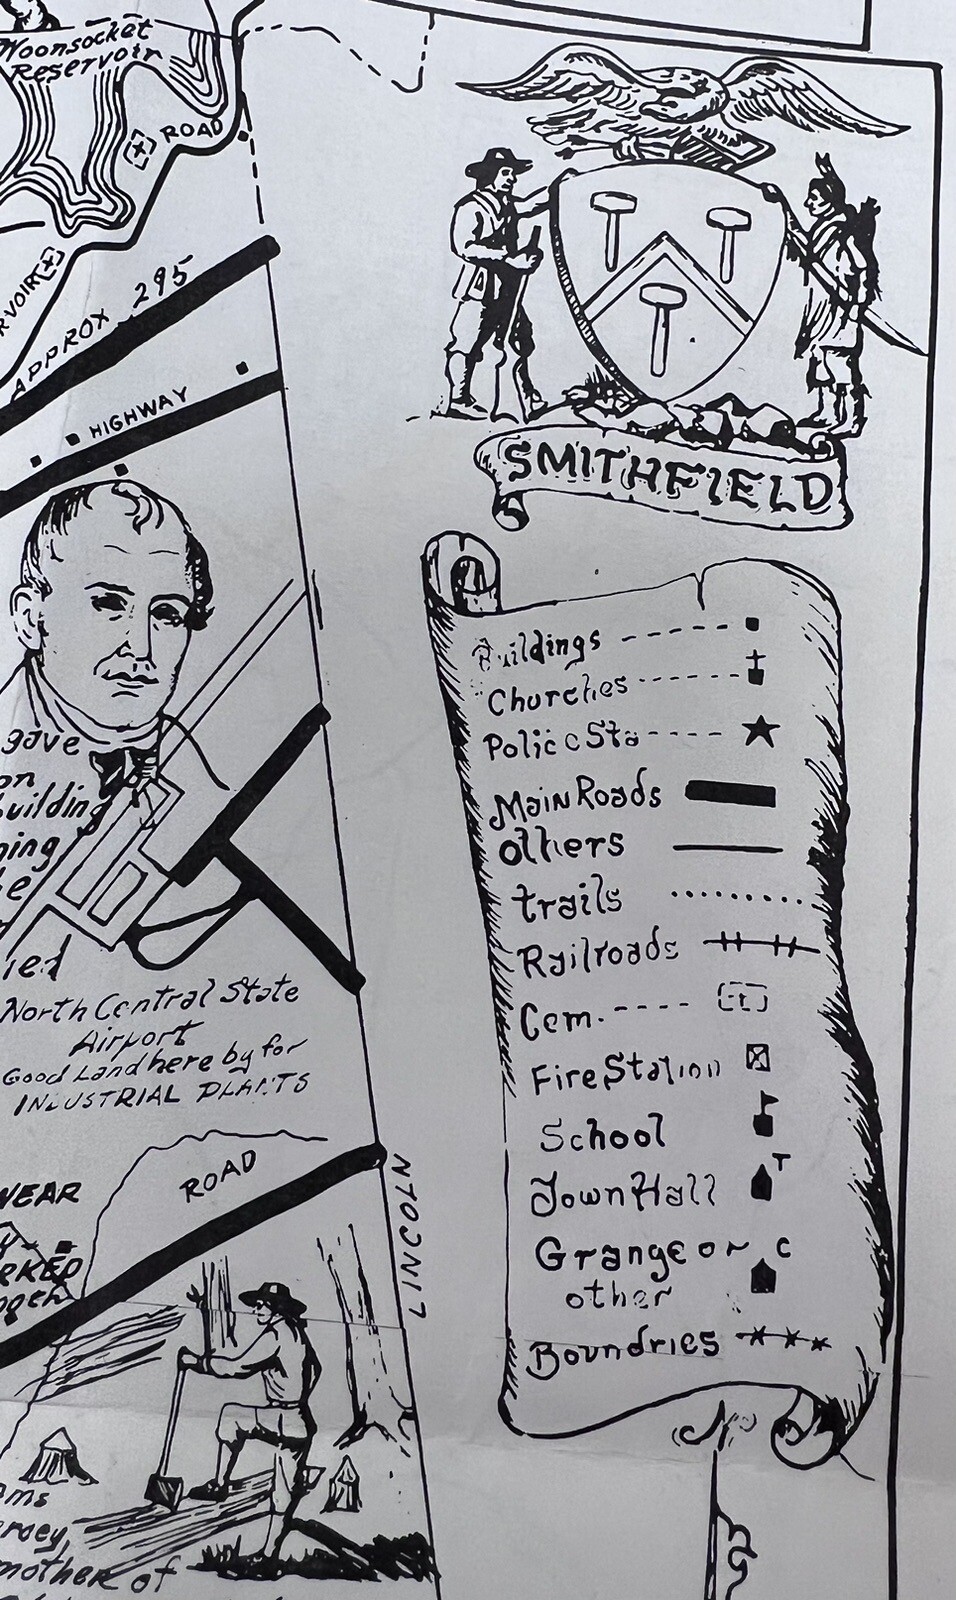 Woonsocket
Reservoir
ROAD
APPROX 295
HIGHWAY
gave
on
building
North Central State
Airport
Good Land here by for
INDUSTRIAL PLANTS
ROAD
LINCOLN
mother of
SMITHFIELD
Buildings
Churches
Police Sta
Main Roads
others
trails
Railroads
Cem.
Fire Station
School
Town Hall T
Grange or C
other
Boundries